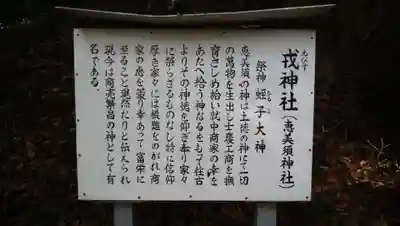 えびす
戎神社（恵美須神社）
祭神 蛭子大神
ひるこ
恵美須の神は土徳の神にて一切
の萬物を生出し士農工商を撫
育さしめ給い就中商家の幸を
あたへ給う神なるをもって往古
よりその神徳を仰ぎ奉り家々
に祭らざるものなし特に信仰
厚き家々には禍をのがれ商
家の息を蒙り幸あって富栄に
至ること現然たりと伝えられ
現今は商売繁昌の神として有
名である